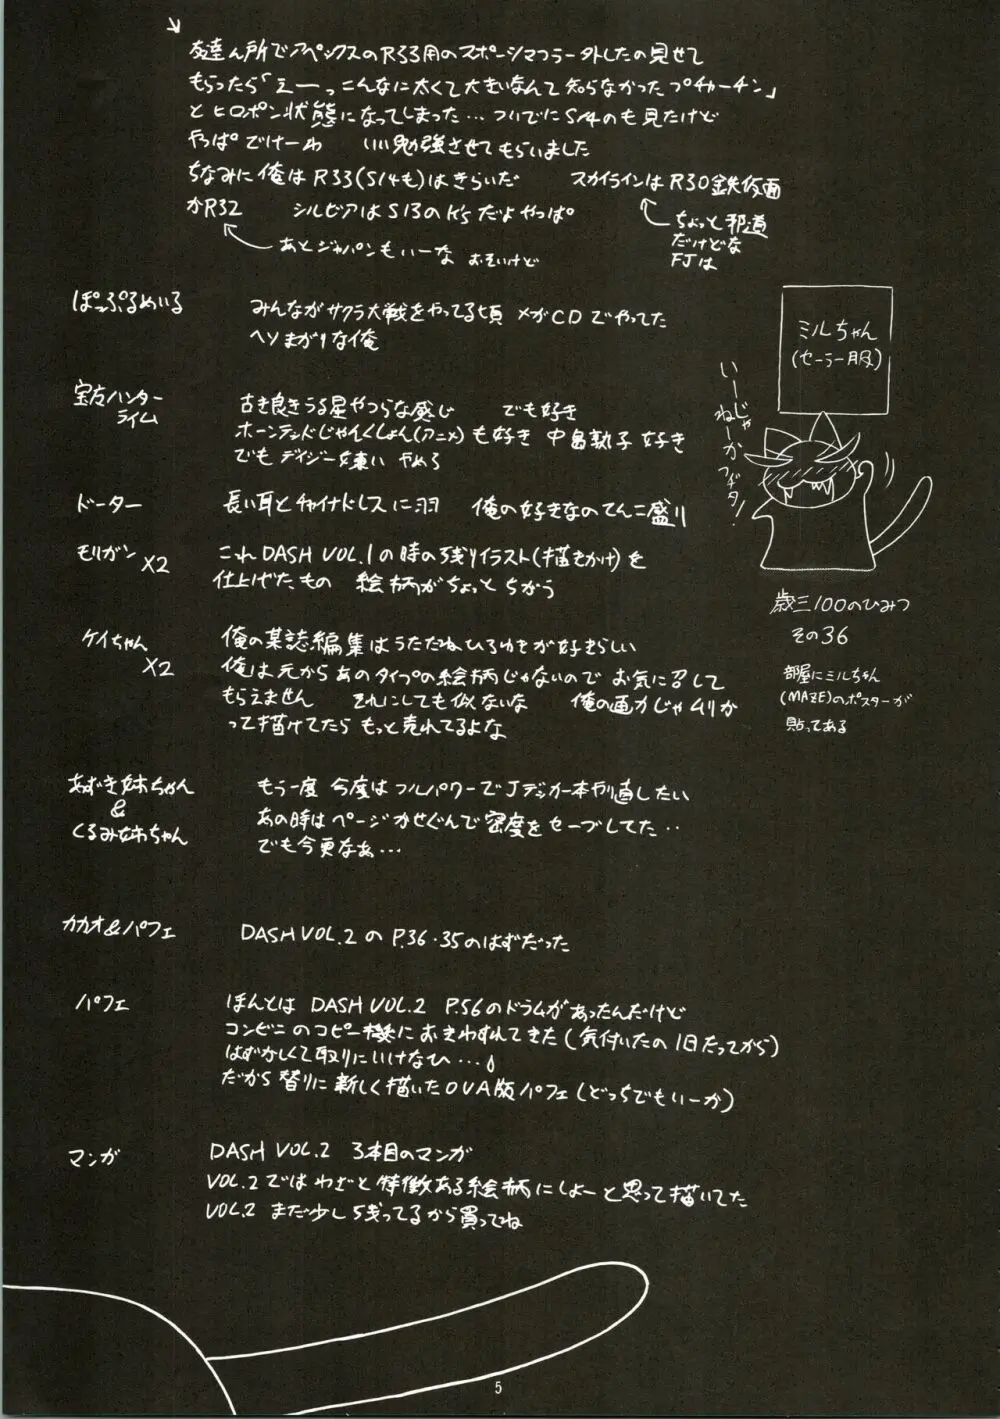 友達ん所でアペックスのR33用のスポーツマフラー外したの見せて
もらったら「えーっこんなに太くて大きいなんて知らなかったプチカーチン」
とヒロポン状態になってしまった…ついでにS14のも見たけど
やっぱでけーわ いい勉強させてもらいました
ちなみに俺はR33(S14も)はきらいだ スカイラインはR30鉄仮面
かR32 シルビアはS13のK'sだよやっぱ
ちょっと邪道
だけどな
FJは
あとジャパンもいーな おそいけど
ぽっぷるめいる
みんながサクラ大戦をやってる頃 メガCDでやってた
ヘソまがりな俺
宝石ハンター
ライム
古き良きうる星やつらな感じ でも好き
ホーンテッドじゃんくしょん(アニメ)も好き 中島敦子 好き
でもデイジー嫌い やめろ
ドーター
長い耳とチャイナドレスに羽 俺の好きなのてんこ盛り
モリガン
X2
これDASH VOL.1の時の残りイラスト(描きかけ)を
仕上げたもの 絵柄がちょっとちがう
ケイちゃん
X2
俺の某誌編集はうたたねひろゆきが好きらしい
俺は元からあのタイプの絵柄じゃないので お気に召して
もらえません それにしても似ないな 俺の画力じゃムリか
って描けてたら もっと売れてるよな
あずき姉ちゃん
&
くるみ姉ちゃん
もう一度 今度はフルパワーでJデッカー本作直したい
あの時はページかせぐんで密度をセーブしてた‥
でも今更なあ…
カカオ&パフェ
DASH VOL.2の P.36・35のはずだった
パフェ
ほんとは DASH VOL.2 P.56のドラムがあったんだけど
コンビニのコピー機におきわすれてきた(気付いたの1日たってから)
はずかしくて取りにいけなひ…
だから替りに新しく描いたOVA版パフェ(どっちでもいーか)
マンガ
DASH VOL.2 3本目のマンガ
VOL.2ではわざと特徴ある絵柄にしよーと思って描いてた
VOL.2 まだ少し残ってるから買ってね
ミルちゃん
(セーラー服)
いーじゃ
ねーか
歳三100のひみつ
その36
部屋にミルちゃん
(MAZE)のポスターが
貼ってある
5